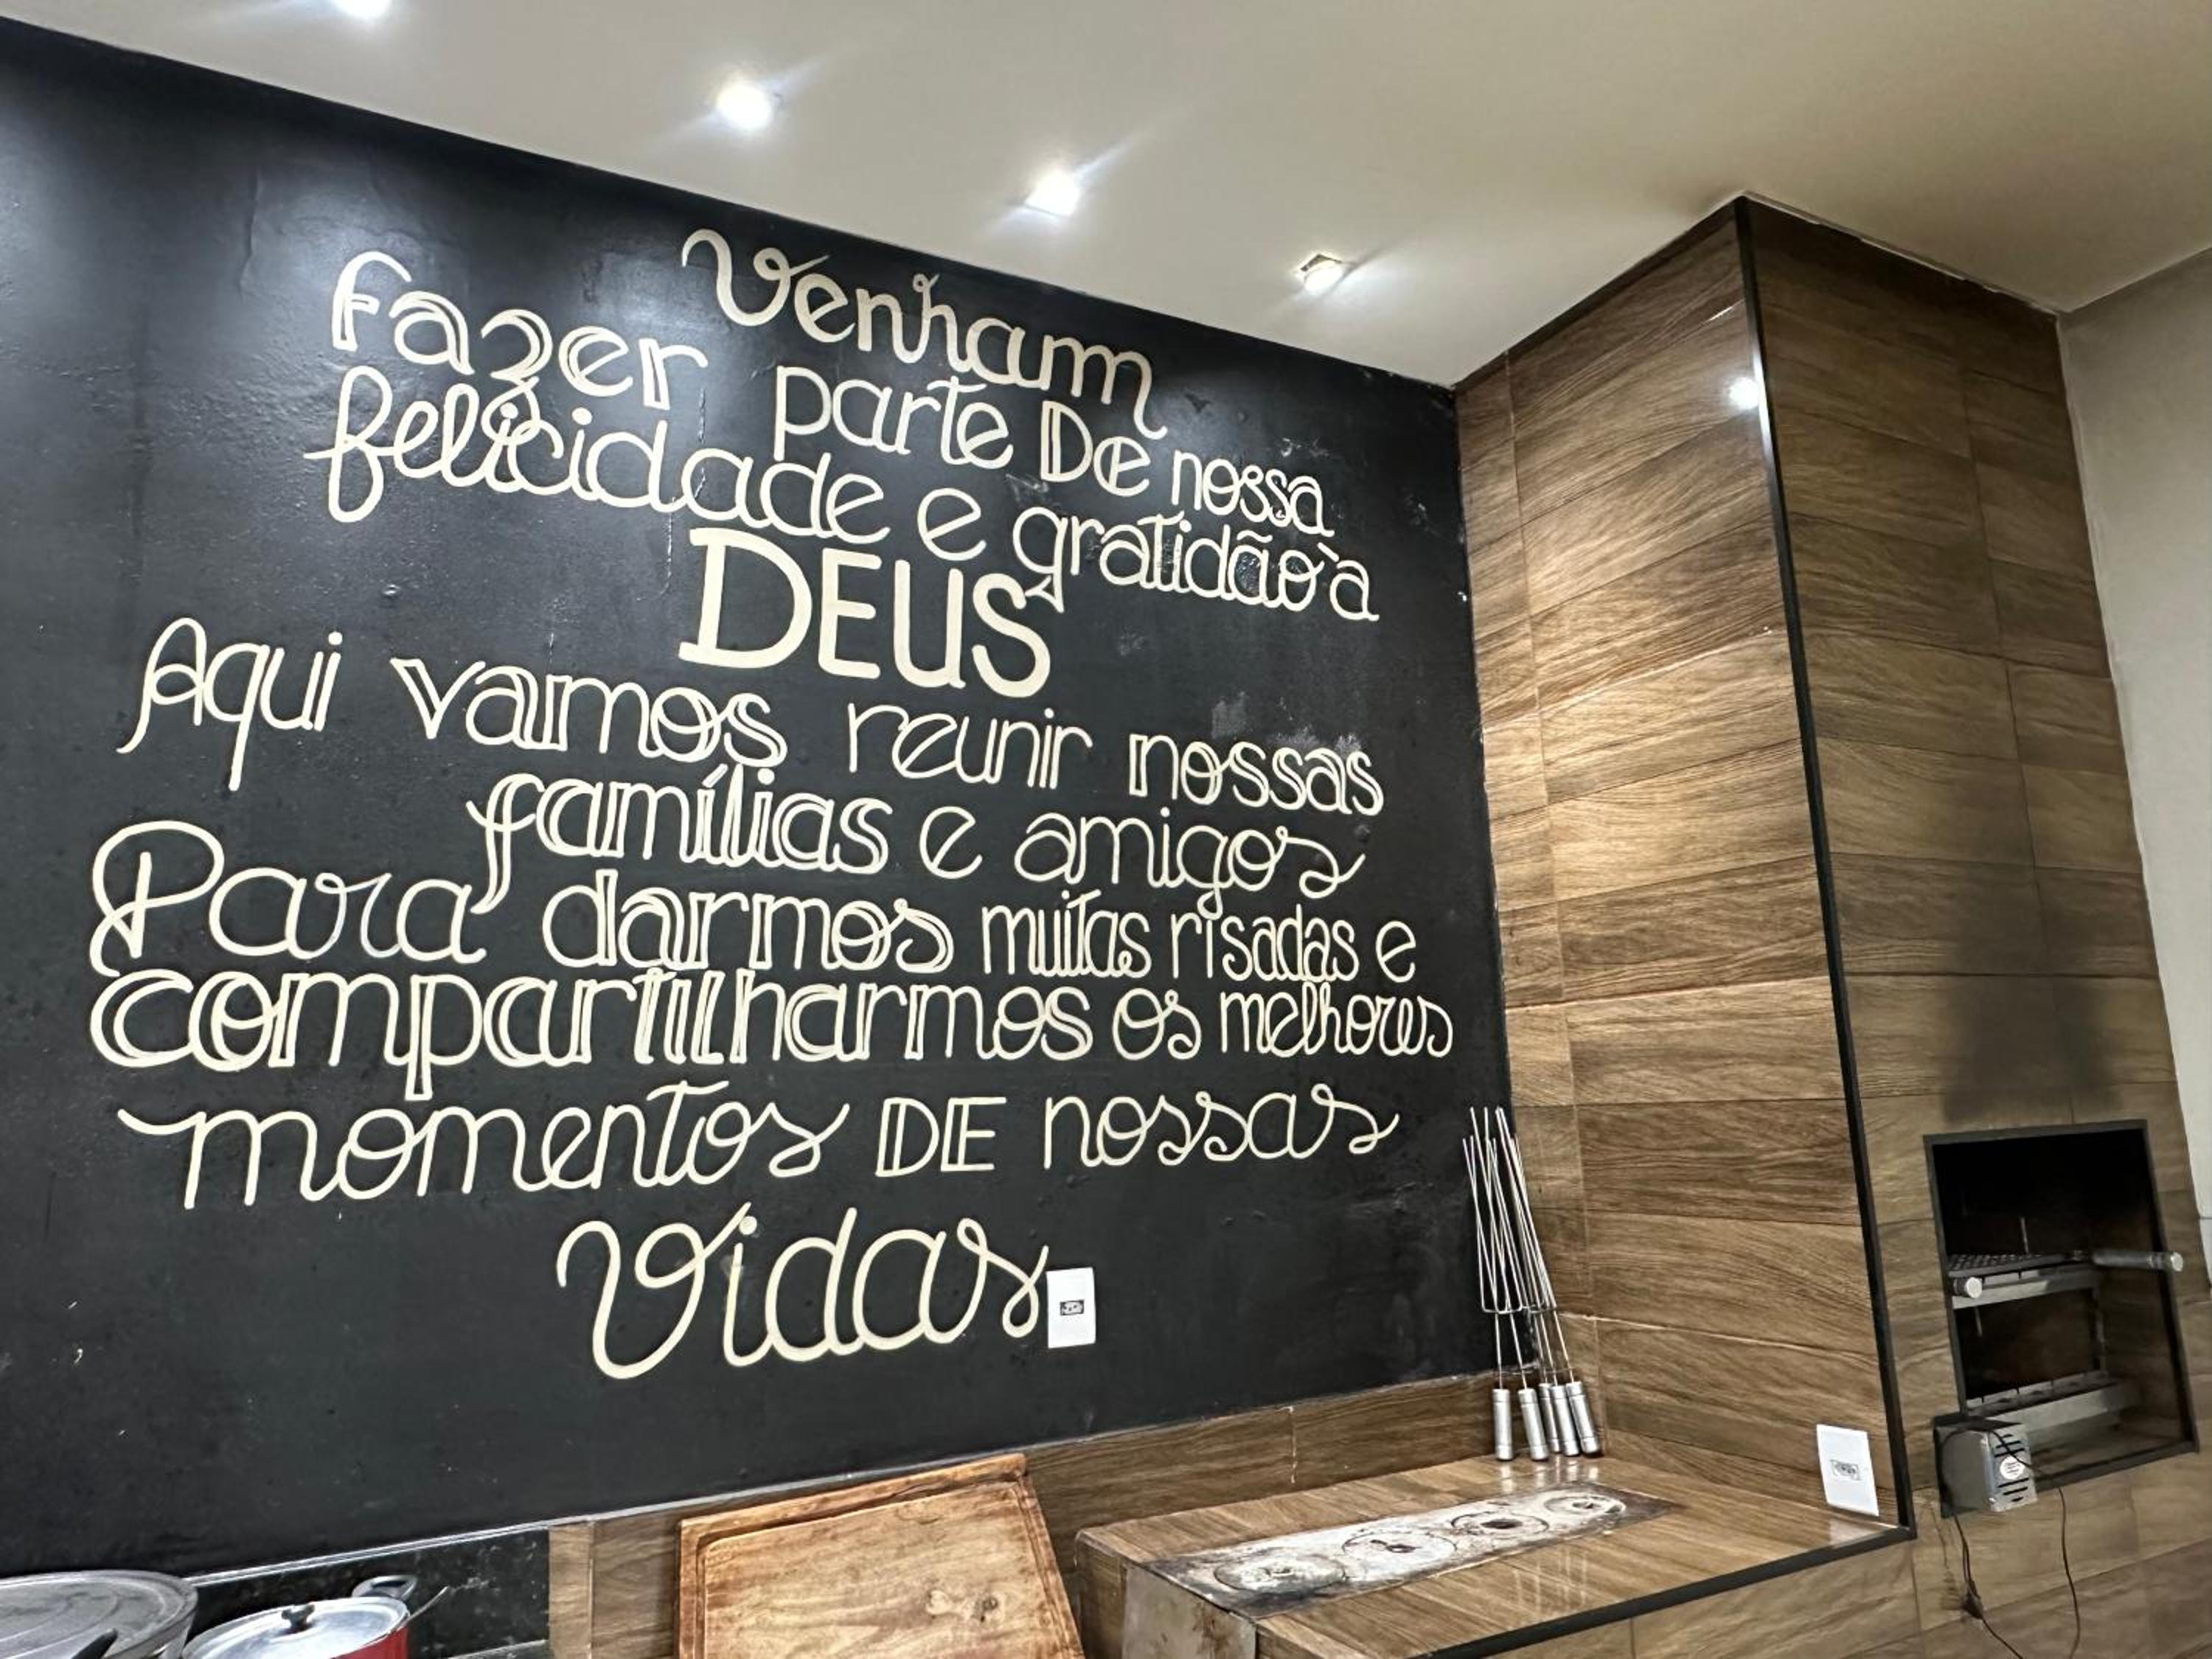 Venham
fazer parte DE nossa
felicidade e gratidão à
DEUS
Aqui vamos reunir nossas
famílias e amigos
Para darmos muitas risadas e
compartilharmos os melhores
momentos DE nossas
Vidas